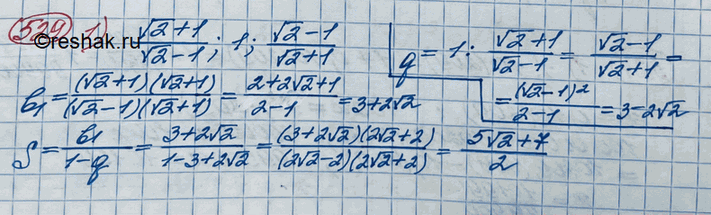 529 1) (√2+1)/(√2-1); 1; (√2-1)/(√2+1)
©reshak.ru
q = 1 : (√2+1)/(√2-1) = (√2-1)/(√2+1) =
= (√2-1)²/(2-1) = 3-2√2
b₁ = (√2+1)(√2+1)/(√2-1)(√2+1) = (2+2√2+1)/(2-1) = 3+2√2
S = b₁/(1-q) = (3+2√2)/(1-3+2√2) = (3+2√2)(2√2+2)/(2√2-2)(2√2+2) = (5√2+7)/2